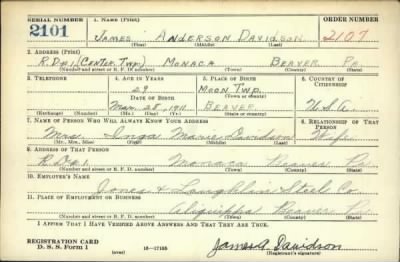 SERIAL NUMBER 1. NAME (Print) ORDER NUMBER
2101 JAMES ANDERSON DAVIDSON 2107
(First) (Middle) (Last)
2. ADDRESS (Print)
R.D.#1 (Center Twp.) MONACA BEAVER Pa.
(Number and street or R. F. D. number) (Town) (County) (State)
3. TELEPHONE 4. AGE IN YEARS 5. PLACE OF BIRTH 6. COUNTRY OF CITIZENSHIP
29 MOON TWP.
DATE OF BIRTH (Town or county)
Mar. 28, 1911 BEAVER U.S.A.
(Exchange) (Number) (Mo.) (Day) (Yr.) (State or country)
7. NAME OF PERSON WHO WILL ALWAYS KNOW YOUR ADDRESS 8. RELATIONSHIP OF THAT PERSON
Mrs. Inga Marie Davidson Wife
(Mr., Mrs., Miss) (First) (Middle) (Last)
9. ADDRESS OF THAT PERSON
R.D.#1. Monaca Beaver Pa.
(Number and street or R. F. D. number) (Town) (County) (State)
10. EMPLOYER'S NAME
Jones & Laughlin Steel Co.
11. PLACE OF EMPLOYMENT OR BUSINESS
Aliquippa Beaver Pa.
(Number and street or R. F. D. number) (Town) (County) (State)
I AFFIRM THAT I HAVE VERIFIED ABOVE ANSWERS AND THAT THEY ARE TRUE.
REGISTRATION CARD
D. S. S. Form 1 (over) 16—17105 James A. Davidson
(Registrant's signature)